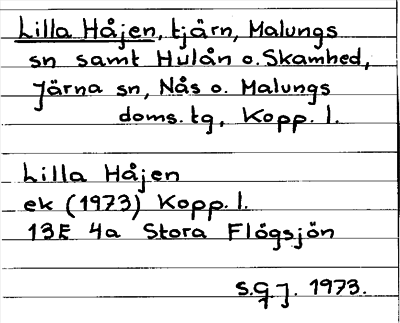 Lilla Håjen, tjärn, Malungs
sn samt Hulån o. Skamhed,
Järna sn, Nås o. Malungs
doms. tg, Kopp. l.
Lilla Håjen
ek (1973) Kopp. l.
13E 4a Stora Flögsjön
S.G.J. 1973.